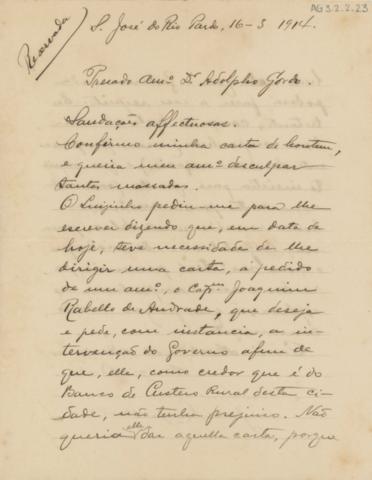 AG3.2.2.23
Reservada
S. José do Rio Pardo, 16-3 1914.
Prezado Amº Dr. Adolpho Gordo.
Saudações affectuosas.
Confirmo minha carta de hontem,
e queira meu amº desculpar
tantas massadas.
O Luizinho pediu-me para lhe
escrever dizendo que, em data de
hoje, teve necessidade de lhe
dirigir uma carta, a pedido
de um amº, o Capm Joaquim
Rabello de Andrade, que deseja
e pede, com instancia, a in-
tervenção do Governo afim de
que, elle, como credor que é do
Banco de Custeio Rural desta ci-
dade, não tenha prejuizo. Não
queria elle dar aquella carta, porque